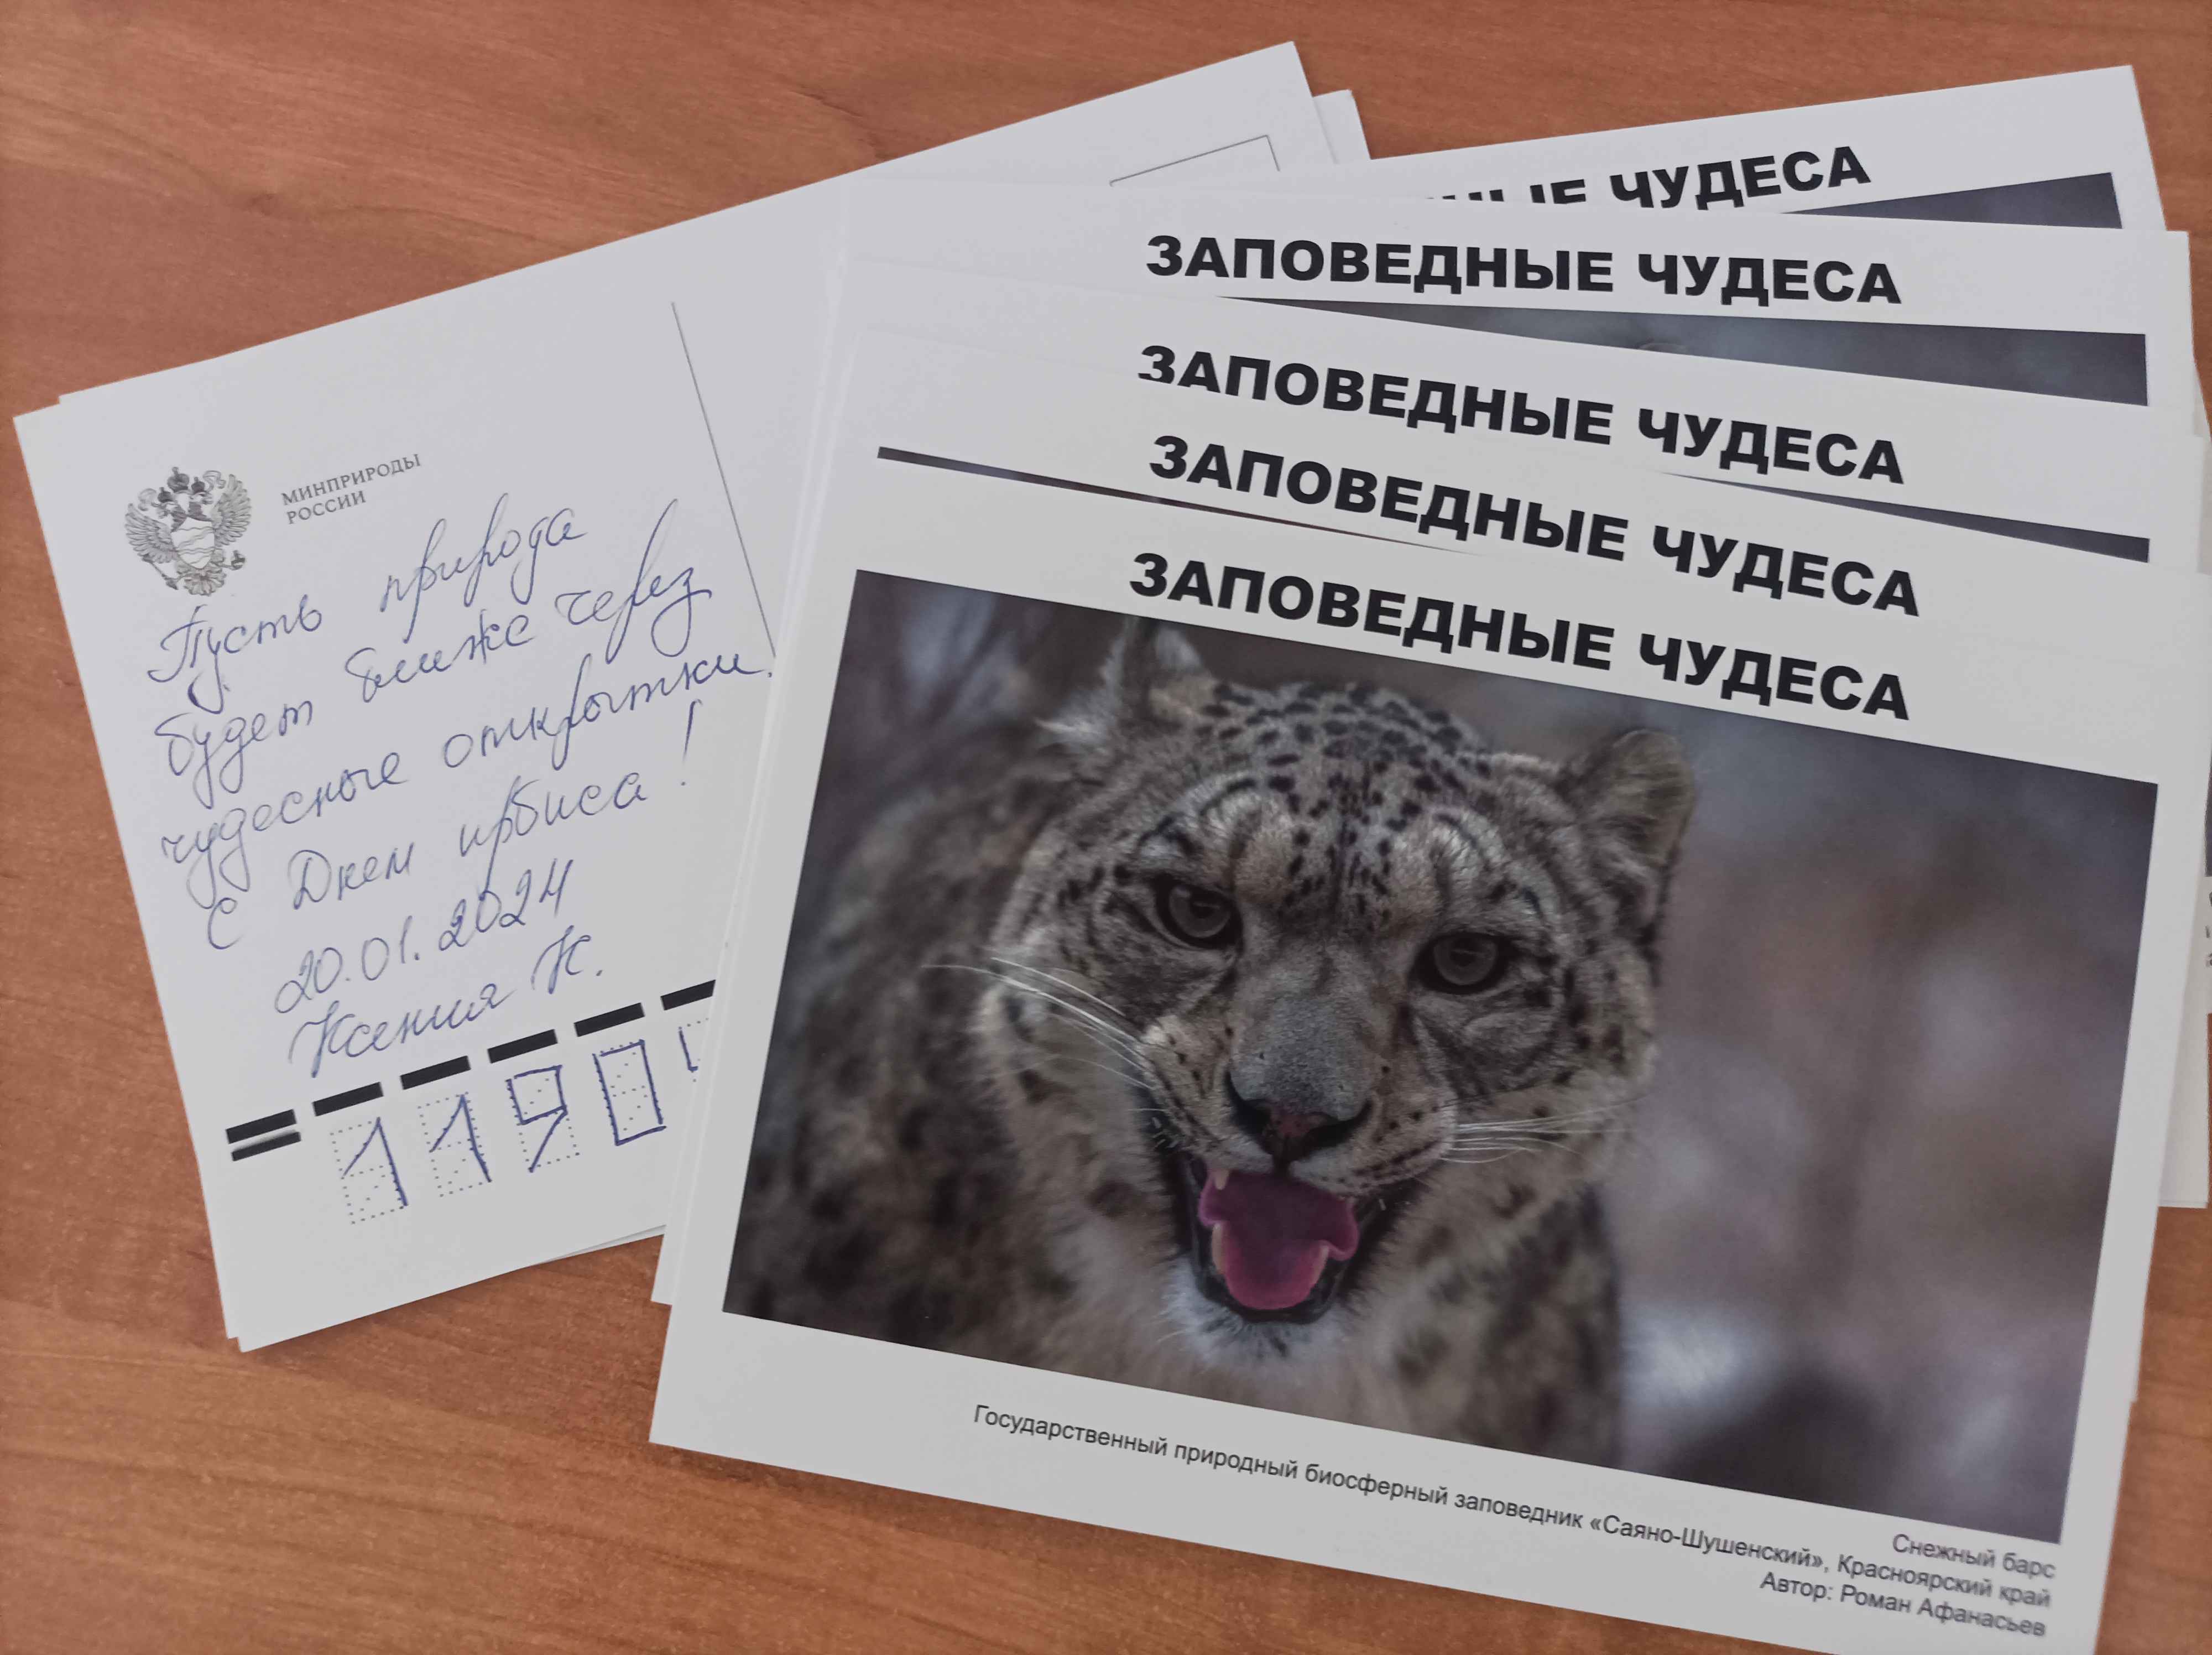 МИНПРИРОДЫ
РОССИИ
Пусть природа
будет ближе через
чудесные открытки.
С Днем ирбиса!
20.01.2024
Ксения К.
1190
НЫЕ ЧУДЕСА
ЗАПОВЕДНЫЕ ЧУДЕСА
ЗАПОВЕДНЫЕ ЧУДЕСА
ЗАПОВЕДНЫЕ ЧУДЕСА
ЗАПОВЕДНЫЕ ЧУДЕСА
Снежный барс
Государственный природный биосферный заповедник «Саяно-Шушенский», Красноярский край
Автор: Роман Афанасьев